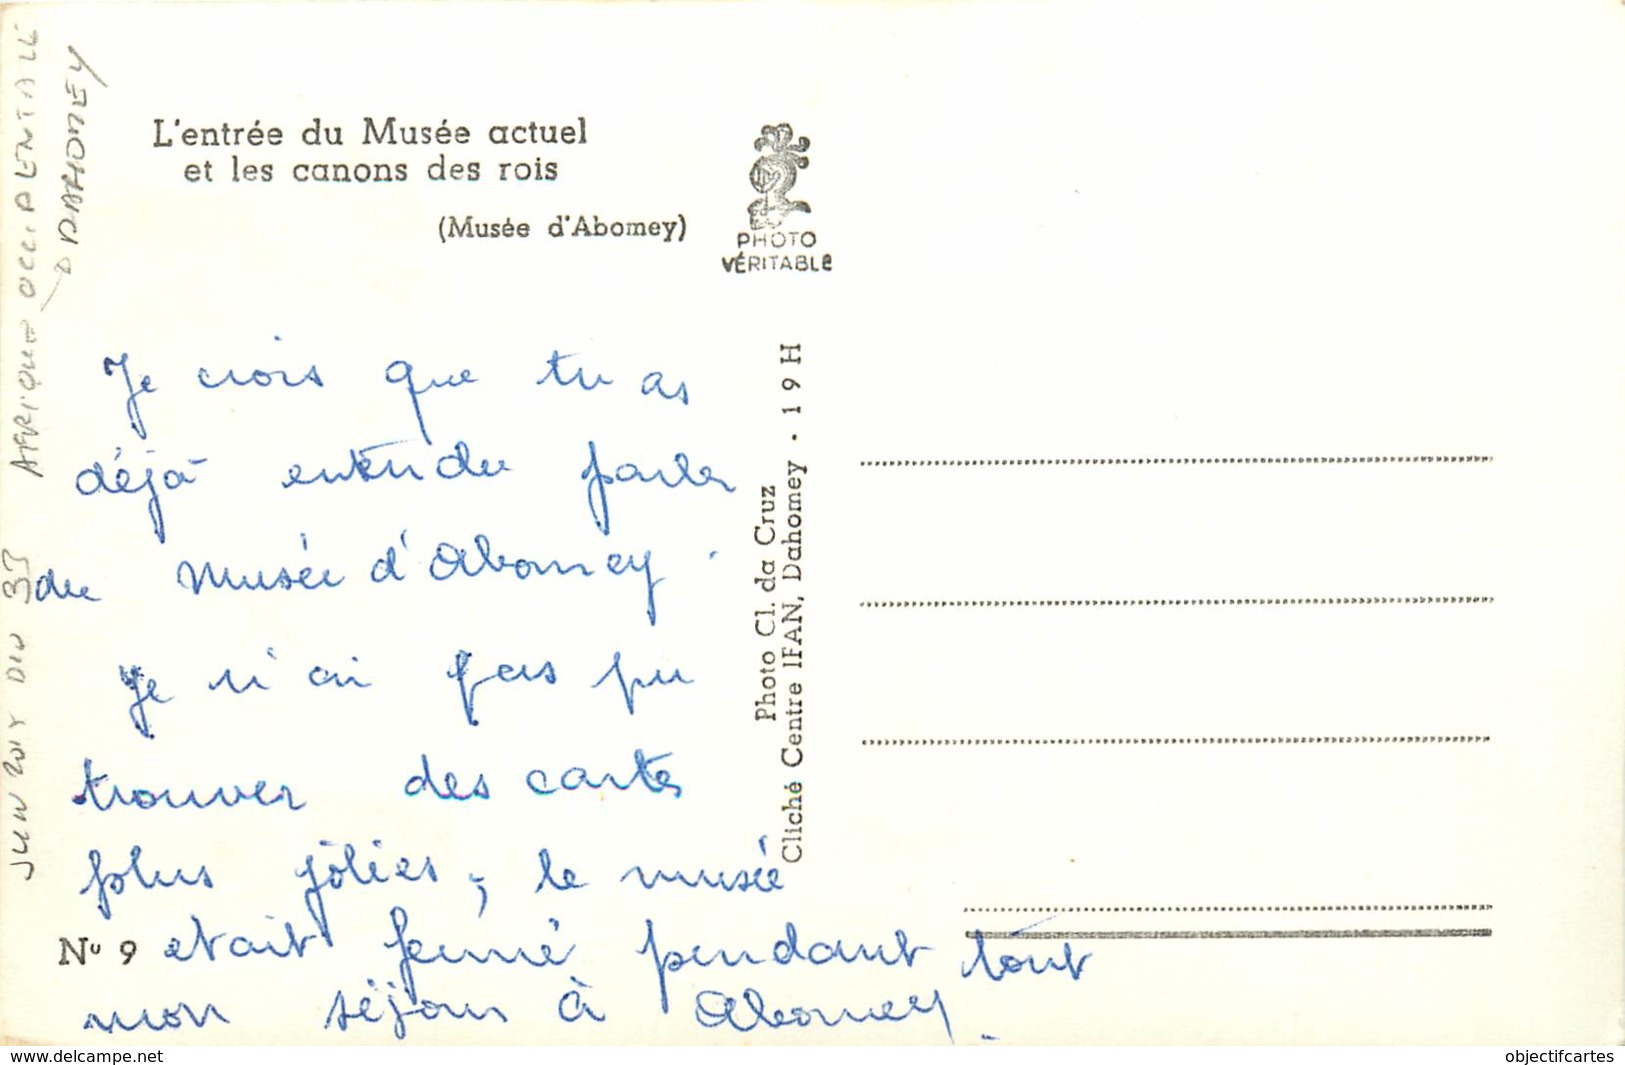 L'entrée du Musée actuel
et les canons des rois
(Musée d'Abomey)
PHOTO
VÉRITABLE
AFRIQUE OCCIDENTALE
DAHOMEY
JUIN 2014 DIV 35
Je crois que tu as
déjà entendu parler
du Musée d'Abomey.
Je n'ai pas pu
trouver des cartes
plus jolies, le musée
etait fermé pendant tout
mon séjour à Abomey.
Nº 9
Photo Cl. da Cruz
Cliché Centre IFAN, Dahomey - 19 H
www.delcampe.net
objectifcartes